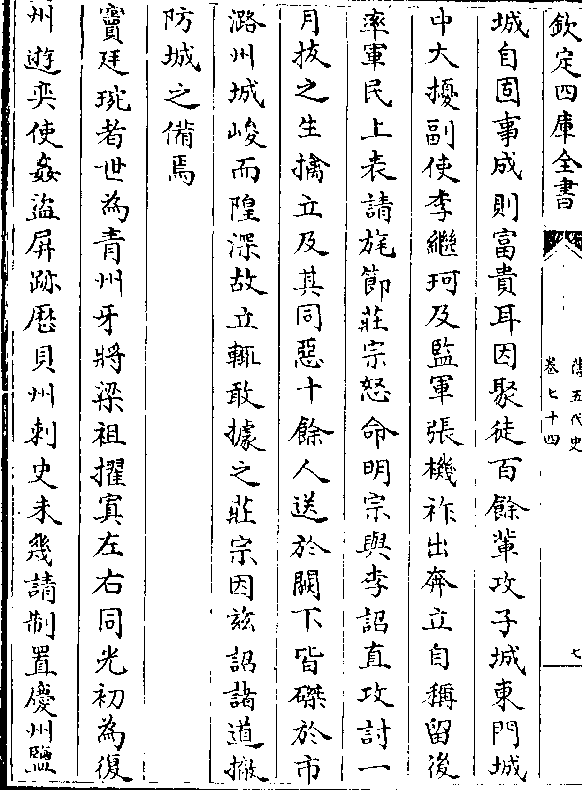 欽定四庫全書
舊五代史
卷七十四
七
城自固事成則富貴耳因聚徒百餘輩攻子城東門城
中大擾副使李繼珂及監軍張機祚出奔立自稱留後
率軍民上表請旄節莊宗怒命明宗與李詔直攻討一
月拔之生擒立及其同惡十餘人送於闕下皆磔於市
潞州城峻而隍深故立輒敢據之莊宗因兹詔諸道撤
防城之備焉
竇廷琬者世為青州牙將梁祖擢寘左右同光初為復
州遊奕使姦盜屏跡歴貝州刺史未幾請制置慶州鹽